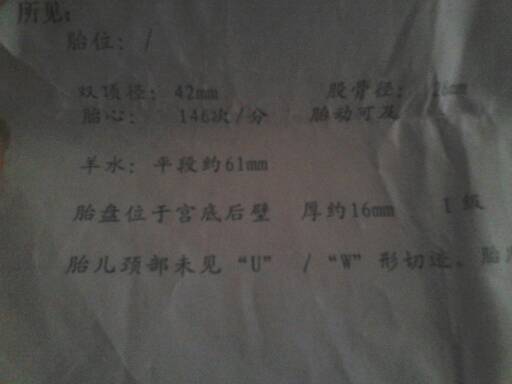 所见:
胎位: /
双顶径: 42mm 股骨径: 26mm
胎心: 146次/分 胎动可及
羊水: 平段约61mm
胎盘位于宫底后壁 厚约16mm I 级
胎儿颈部未见“U” /“W”形切迹、胎